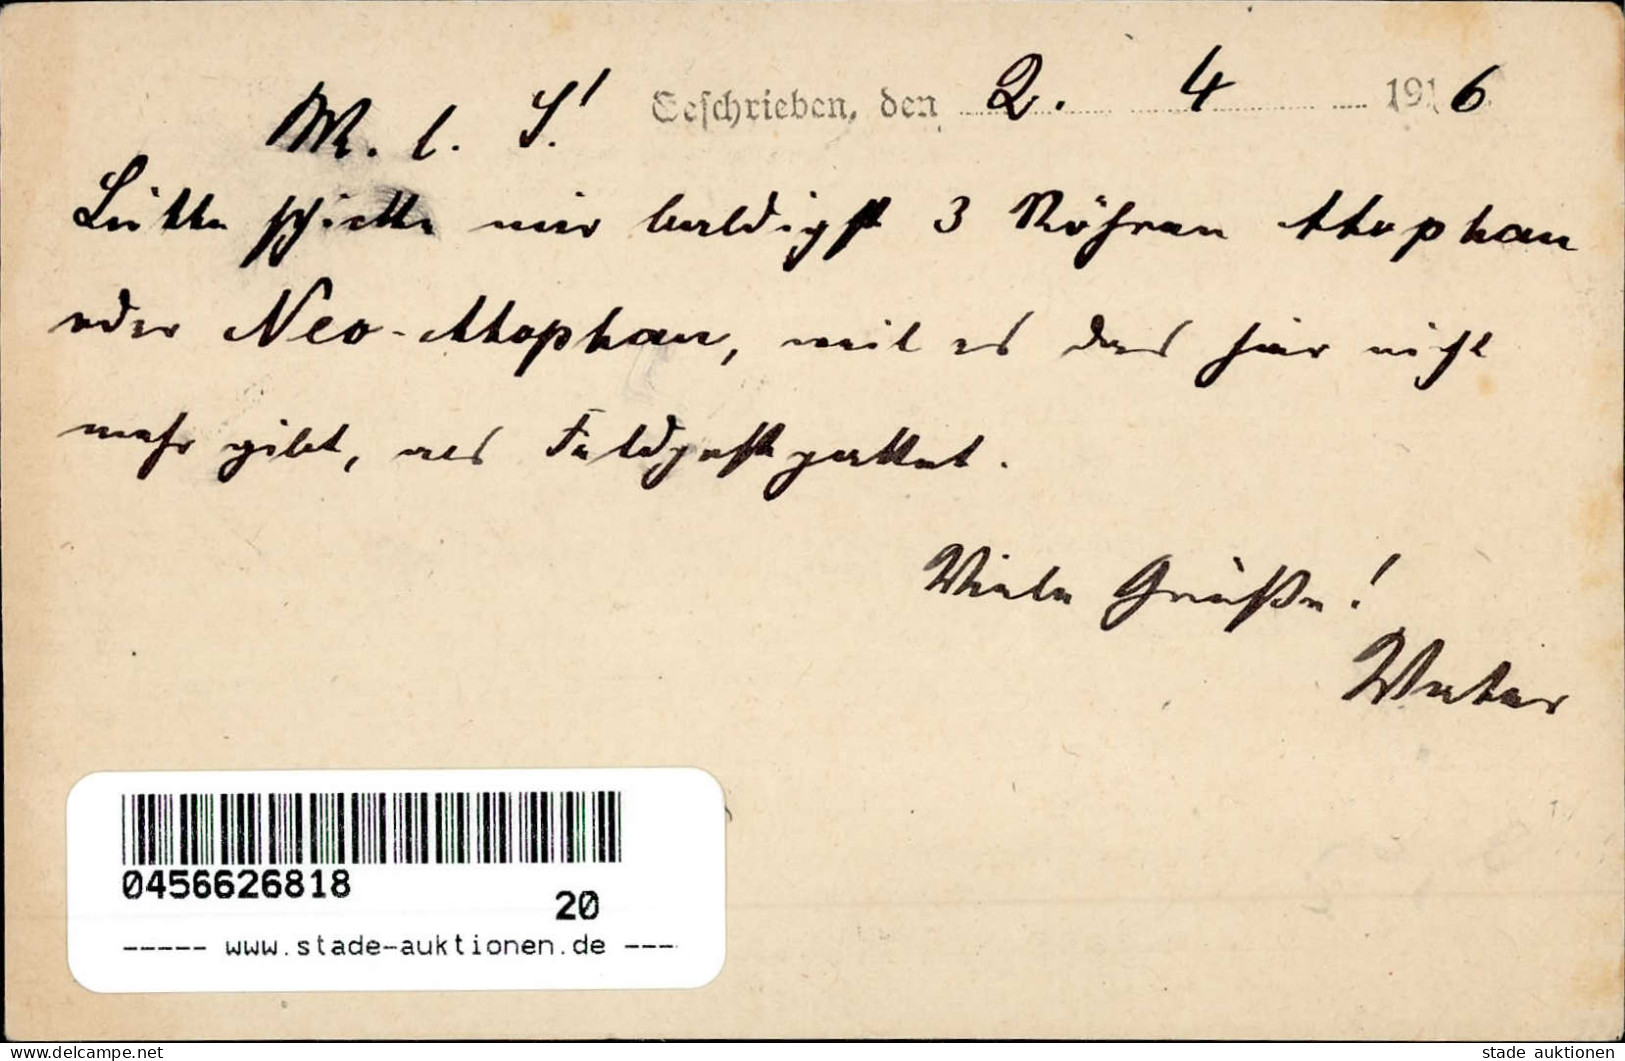 Geschrieben, den 2. 4 1916
M. l. S.!
Bitte schicke mir baldigst 3 Röhren Atophan
oder Neo-Atophan, weil es das hier nicht
mehr gibt, als Feldpostpaket.
Viele Grüße!
Vater
0456626818
20
----- www.stade-auktionen.de ----
www.delcampe.net
stade_auktionen